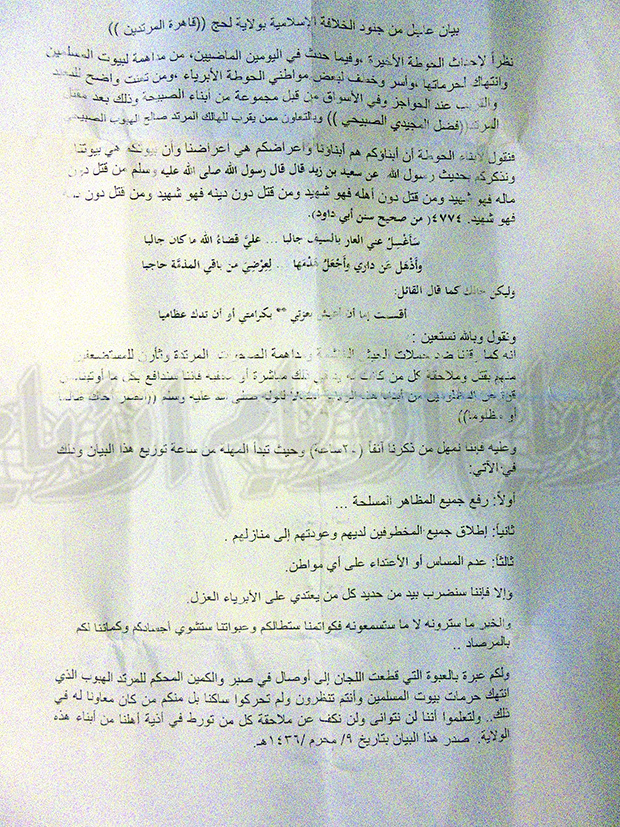 بيان عاجل من جنود الخلافة الإسلامية بولاية لحج ((قاهرة المرتدين ))
نظراً لاحداث الحوطة الأخيرة ،وفيما حدث في اليومين الماضيين، من مداهمة لبيوت المسلمين
وانتهاك لحرماتها، وأسر وخطف لبعض مواطني الحوطة الأبرياء ،ومن تعنت واضح
عند الحواجز وفي الأسواق من قبل مجموعة من أبناء الصبيحة وذلك بعد مقتل
المرتد((فضل المجيدي الصبيحي )) وبالتعاون ممن يقرب للهالك المرتد صالح الهبوب الصبيحي
فنقول لأبناء الحوطة أن أبناؤكم هم أبناؤنا وأعراضكم هي اعراضنا وأن بيوتكم هي بيوتنا
ونذكركم بحديث رسول الله عن سعيد بن زيد قال قال رسول الله صلى الله عليه وسلم من قتل دون
ماله فهو شهيد ومن قتل دون أهله فهو شهيد ومن قتل دون دينه فهو شهيد ومن قتل دون
فهو شهيد. ٤٧٧٤( من صحيح سنن أبي داود).
سَأغسِلُ عني العار بالسيف جالبا ... عليَّ قضاءُ الله ما كان جالبا
وأذهَل عَن داري وأجْعَلُ هَدْمَها ... لِعِرْضِيَ من باقي المذمَّة حاجبا
وليكن حالك كما قال القائل:
أقسمت إما أن أعيش بعزتي ** بكرامتي أو أن تدك عظاميا
ونقول وبالله نستعين :
انه كما قمنا ضد حملات الجيش ومداهمة المرتدة وثأرن للمستضعفين
منهم بقتل وملاحقة كل من كانت له يد في ذلك مباشرة أو فإننا سندافع بكل ما أوتينا من
قوة عن المظلومين من أبناء هذه الولاية لقوله صلى الله عليه وسلم ((أنصر أخاك ظالما
أو مظلوما))
وعليه فإننا نمهل من ذكرنا آنفاً ساعة) وحيث تبدأ المهله من ساعة توزيع هذا البيان وذلك
في الآتي:
أولاً: رفع جميع المظاهر المسلحة ...
ثانياً: إطلاق جميع المخطوفين لديهم وعودتهم إلى منازلهم .
ثالثاً: عدم المساس أو الأعتداء على أي مواطن.
وإلا فإننا سنضرب بيد من حديد كل من يعتدي على الأبرياء العزل.
والخبر ما سترونه لا ما ستسمعونه فكواتمنا ستطالكم وعبواتنا ستشوي أجسادكم وكمائننا لكم
بالمرصاد ..
ولكم عبرة بالعبوة التي قطعت اللجان إلى أوصال في صبر والكمين المحكم للمرتد الهبوب الذي
انتهك حرمات بيوت المسلمين وأنتم تنظرون ولم تحركوا ساكنا بل منكم من كان معاونا له في
ذلك.. ولتعلموا أننا لن نتوانى ولن نكف عن ملاحقة كل من تورط في أذية أهلنا من أبناء هذه
الولاية. صدر هذا البيان بتاريخ ٩/ محرم /١٤٣٦هـ.